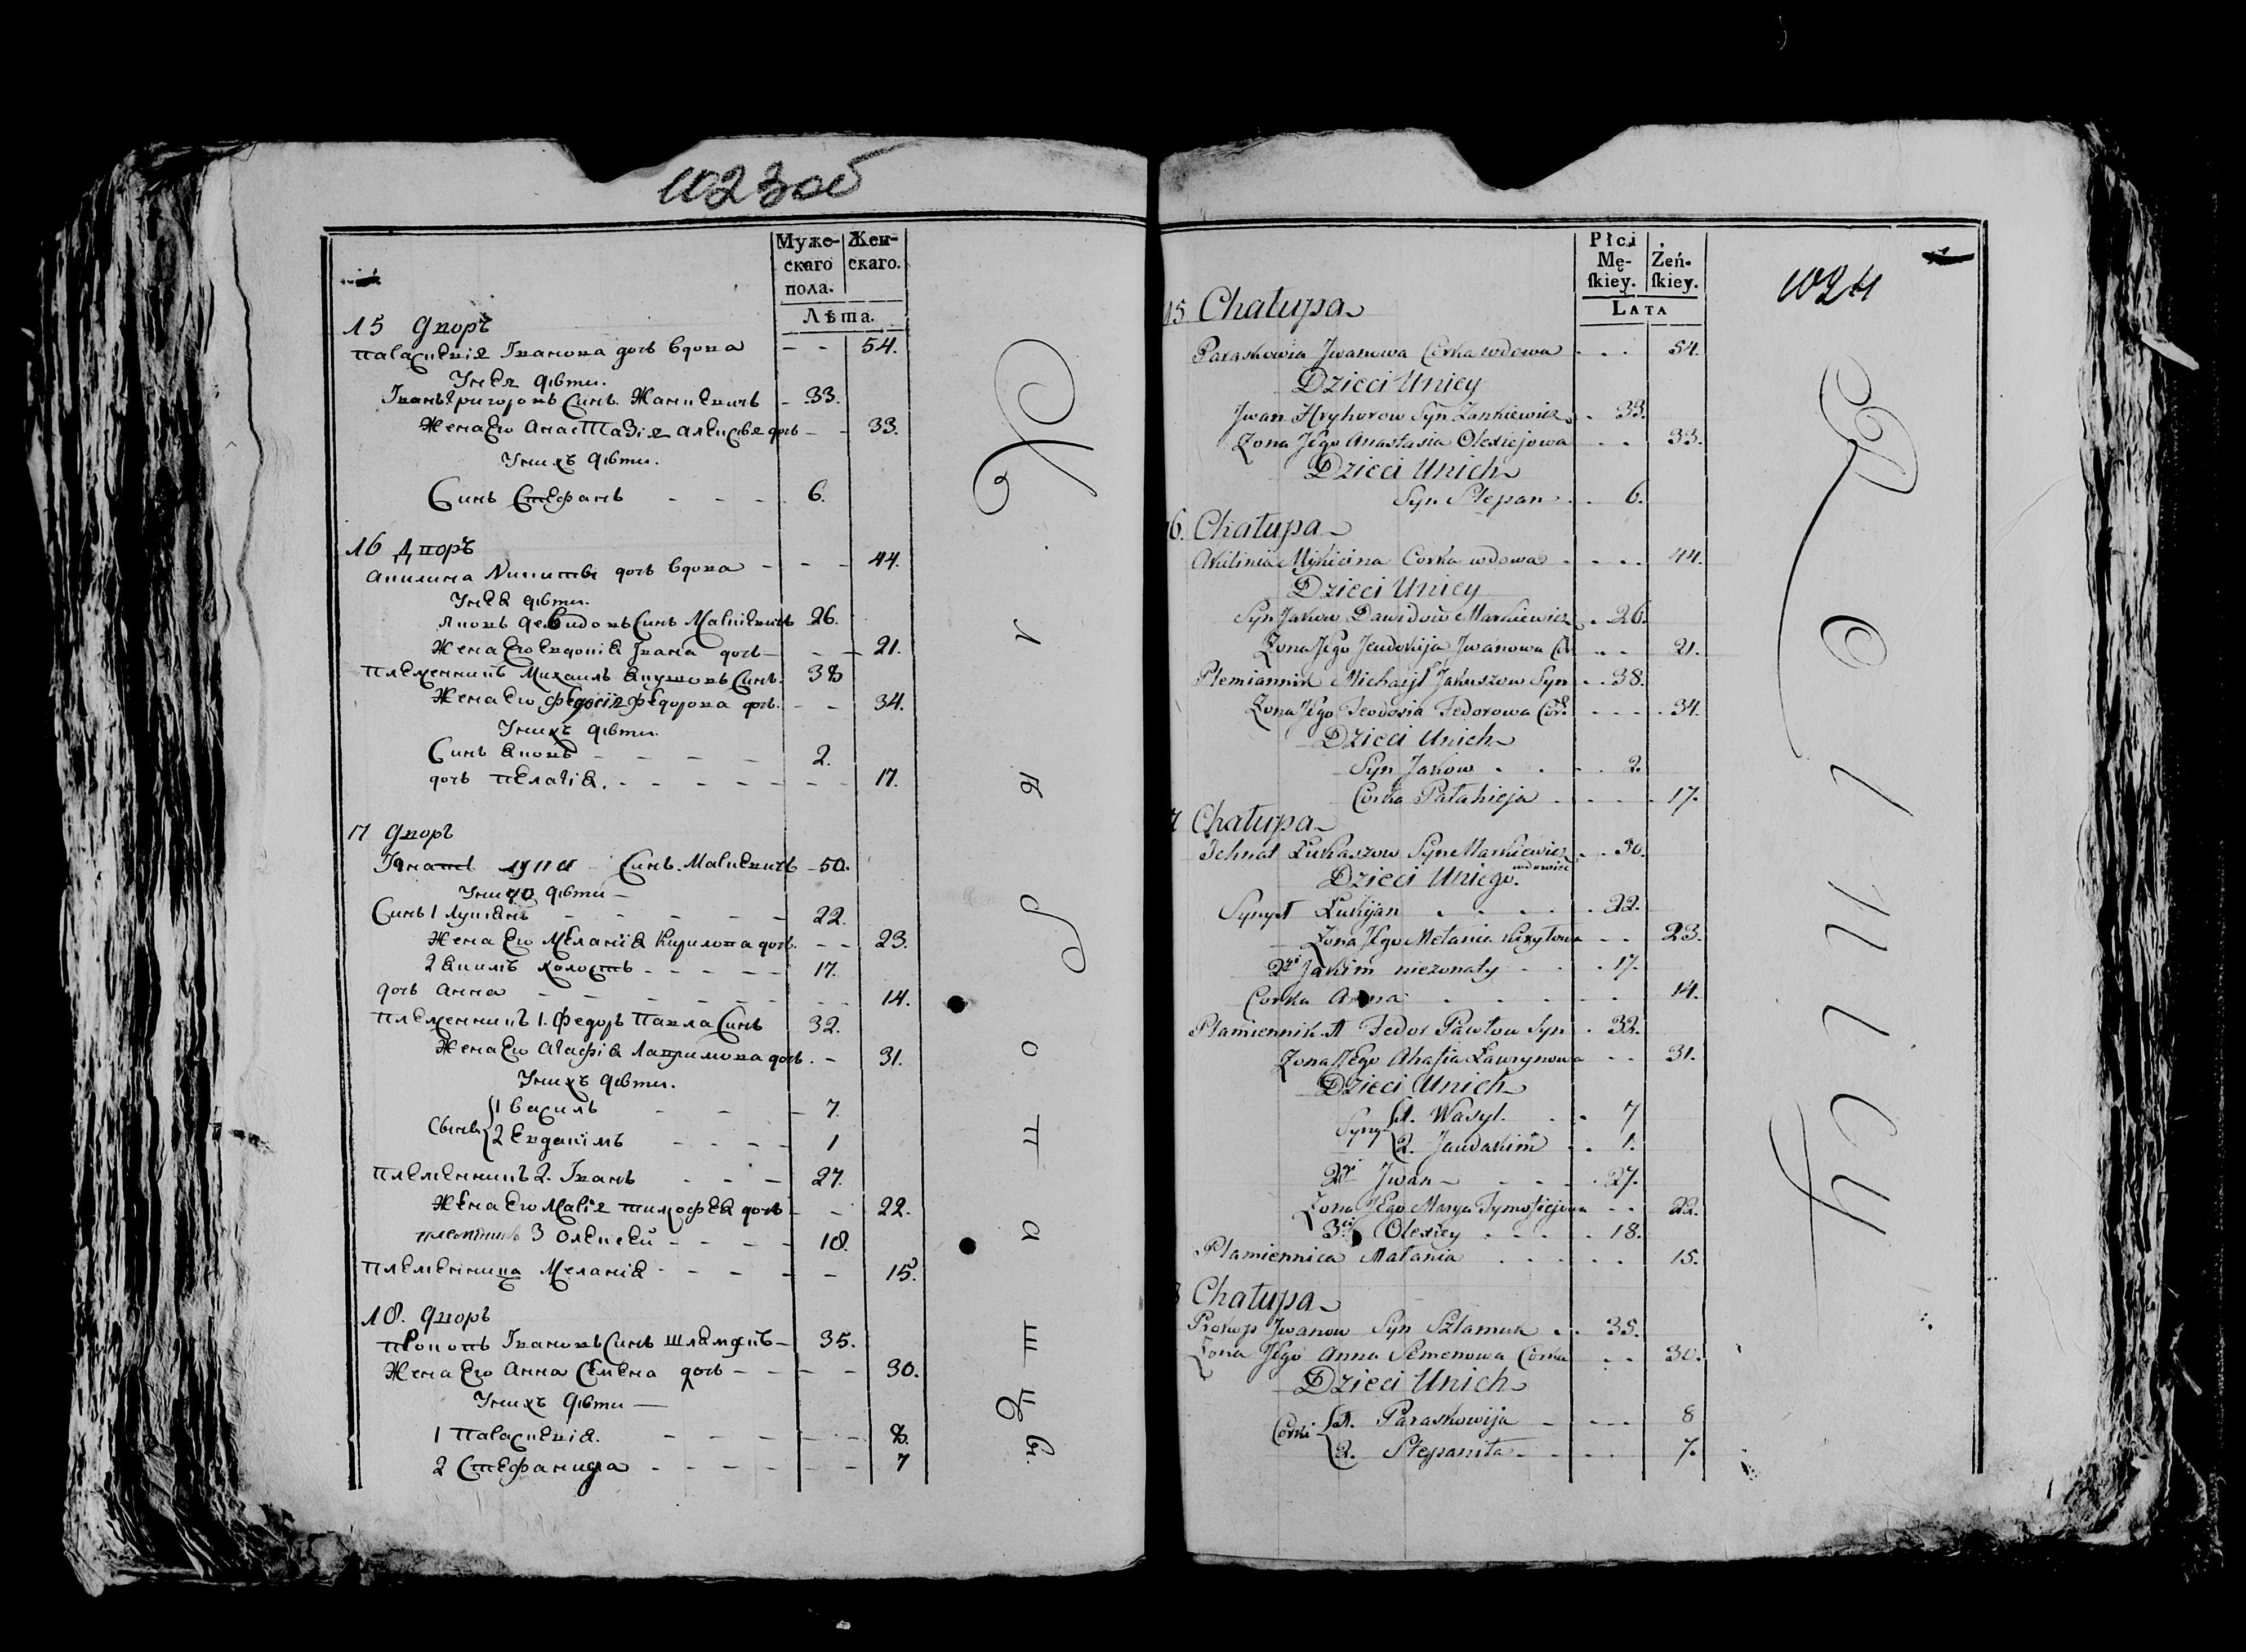 1023 об
Муже-скаго пола.
Жен-скаго.
Лѣта.
15 Дворъ
Параскевія Іванова дочь вдова - - 54.
У нея дѣти.
Іванъ Григоровъ Синъ Жанкевичъ - 33.
Жена Его Анастазія Алексѣя дочь - - 33.
У нихъ дѣти.
Синъ Стефанъ - - - 6.
16 Дворъ
Акилина Микиты дочь вдова - - - 44.
У нея дѣти.
Яковъ Девидовъ Синъ Маркевичъ 26.
Жена Его Евдокія Івана дочь - - - 21.
Племенникъ Михаилъ Якушовъ Синъ. 38
Жена Его Федосія Федорова дочь. - - 34.
У нихъ дѣти.
Синъ Яковъ - - - - 2.
дочь Пелагія. - - - - - - 17.
17 Дворъ
Ігнатъ Синъ Маркевичъ - 50.
У нихъ дѣти -
Синъ 1 Лукіянъ - - - - - 22.
Жена Его Меланія Кирилова дочь. - - 23.
2 Якимъ холостъ - - - - - 17.
дочь Анна - - - - - - - 14.
Племенникъ 1. Федоръ Павла Синъ 32.
Жена Его Агафія Лавримова дочь. - 31.
У нихъ дѣти.
Сыны 1 Василь - - - 7.
2 Евдакімъ - - - - 1
Племенникъ 2. Іванъ - - - 27.
Жена Его Марія Тимофея дочь - - 22.
племяникъ 3 Олексей - - - - 18.
Племенница Меланія - - - - - 15.
18. Дворъ
Прокопъ Івановъ Синъ Шламукъ - 35.
Жена Его Анна Семена дочь - - - - 30.
У нихъ дѣти -
1 Параскевія. - - - - - 8.
2 Стефанида - - - - - - 7
Płci Mę-ſkiey.
Żeń-ſkiey.
LATA
1024
15 Chałupa
Paraskowia Jwanowa Corka wdowa . . . 54.
Dzieci Uniey
Jwan Hryhorow Syn Zankiewicz . 33.
Zona Jego Anastasia Olexiejowa . . 33.
Dzieci Unich
Syn Stepan . . 6.
6. Chałupa
Akilinia Mykicina Corka wdowa . . . . 44.
Dzieci Uniey
Syn Jakow Dawidow Markiewicz . 26.
Zona Jego Jeudokija Jwanowa Cór . . 21.
Plemiannik Michaył Jakuszow Syn . . 38.
Zona Jego Teodosia Fedorowa Cor. . . . . 34.
Dzieci Unich
Syn Jakow . . . 2.
Corka Pałahieja . . . . 17.
7 Chałupa
Ichnat Łukaszow Syn Markiewicz . . 50.
wdowiec
Dzieci Uniego.
Syny 1 Łukijan . . . . . 22.
Zona Jego Mełania Kiryłowa . . 23.
2gi Jakim niezonaty . . . 17.
Corka Anna . . . . . . 14.
Plamiennik 1 Fedor Pawłow Syn . 32.
Zona Jego Ahafia Ławrynowa . . 31.
Dzieci Unich
Syny 1. Wasyl. . . . 7
2. Jaudakim . . 1.
2gi Jwan . . . . 27.
Zona Jego Marya Tymofiejowa . . 22.
3ci Olexiey . . . . 18.
Plamiennica Małania . . . . . 15.
Chałupa
Prokop Jwanow Syn Szlamuk . . 35.
Zona Jego Anna Semenowa Corka . . 30.
Dzieci Unich
Corki 1. Paraskowija - . . . 8
2. Stepanita . . . . 7.
Rolnicy